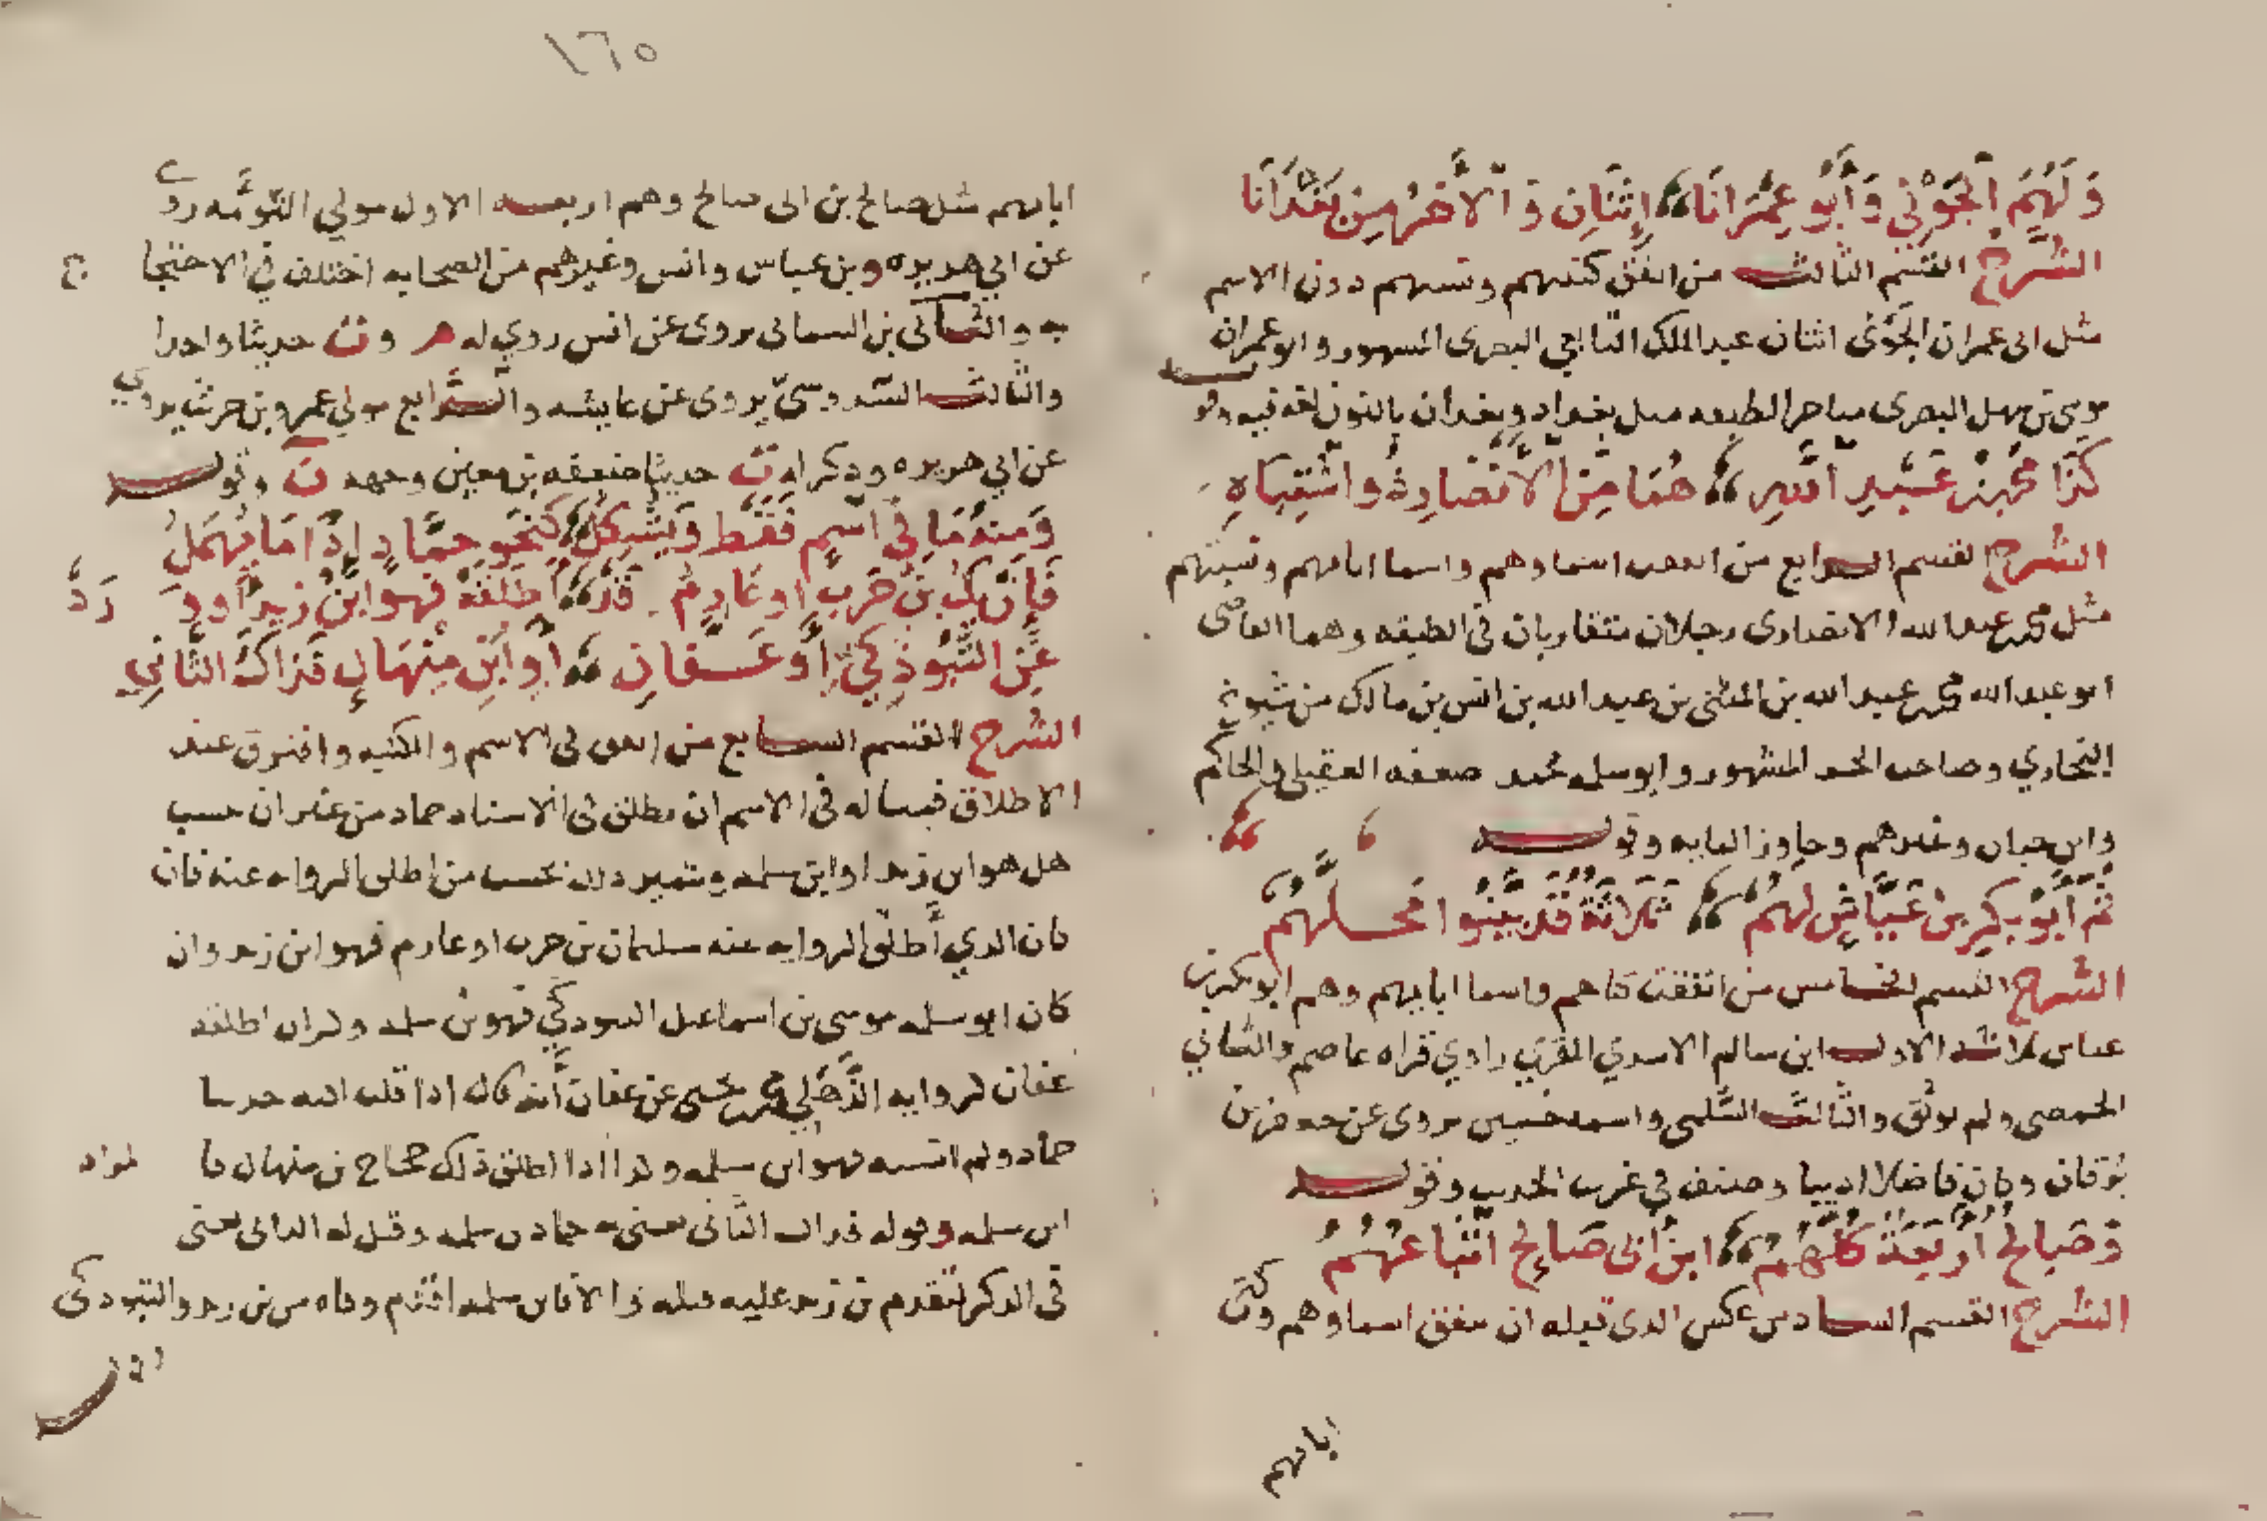 وَلَهُمِ الْجَوْنِي وَأَبُو عِمْرَانَا اِثْنَانِ وَالْآخَرُ مِن بَغْدَانَا
الشرح القسم الثالث من اتفق كنيتهم ونسبهم دون الاسم
مثل ابى عمران الجوني اثنان عبد الملك التابعي البصرى المشهور وابو عمران
موسى بن سهل البصرى متاخر الطبقه ببغداد وبغدان بالنون لغه فيه وقو
كَذَا محمد بن عَبْدِ اللهِ هُمَا مِنَ الْأَنْصَارِ ذو اشْتِبَاهِ
الشرح القسم الرابع من اتفقت اسماوهم واسما ابايهم ونسبتهم
مثل محمد عبد الله الانصارى رجلان متقاربان فى الطبقه وهما القاضى
ابو عبد الله محمد عبد الله بن المثنى بن عبد الله بن انس بن مالك من شيوخ
البخاري وصاحب الجزء المشهور وابو سلمه محمد ضعفه العقيلى والحاكم
وابن حبان وغيرهم وجاوز المايه وقولـــه
ثُمَّ أَبُو بَكْرِ بنُ عَيَّاشٍ لَهُمْ ثَلَاثَةٌ قَدْ بَيَّنُوا مَحَلَّهُمْ
الشرح القسم الخامس من اتفقت كناهم واسما ابايهم وهم ابو بكر بن
عياش ثلاثه الاول ابن سالم الاسدي المقري راوي قراه عاصم والثاني
الحمصى ولم يوثق والثالث السلمى واسمه حسين يروى عن جعفر بن
برقان وكان فاضلا اديبا وصنف في غريب الحديث وقولـــه
وَصَالِحٌ أَرْبَعَةٌ كُلُّهُمُ ابنُ أبى صَالِحٍ اتْبَاعٌ هُمُ
الشرح القسم السادس عكس الذى قبله ان يتفق اسماوهم وكنى
ابايهم
١٦٥
ابايهم مثل صالح بن ابى صالح وهم اربعه الاول مولي التوءمه روى
عن ابي هريره وبن عباس وانس وغيرهم من الصحابه اختلف في الاحتجا ج
به والثاني بن السمانى يروى عن انس روي له م وت حديثا واحدا
والثالث السدوسيّ يروى عن عايشه والرابع مولي عمرو بن حريث يروى
عن ابي هريره وذكر له ت حديثا ضعفه بن معين وجهله ت وقولـــه
وَمِنهُ مَا فِي اسْمٍ فَقَط وَيُشْكِلُ كَنَحوِ حَمَّادٍ إِذَا مَا يُهْمَلُ
فَإِن يَكُ بْنُ حَرْبٍ أو عَارِمُ قَد أَطْلَقَهُ فَهوَ ابنُ زَيدٍ أو وَرَدْ
عَنِ التَّبُوذَكِيِّ أَو عَفَّانِ أَو ابْنِ مِنْهَالٍ فَذَاكَ الثَّانِي
الشرح القسم السابع من اتفق فى الاسم والكنيه وافترق عند
الاطلاق فمثاله فى الاسم ان يطلق فى الاسناد حماد من غير ان ينسب
هل هو ابن زيد او ابن سلمه ويتميز ذلك بحسب من اطلق الروايه عنه فان
كان الذي أطلق الروايه عنه سليمان بن حرب او عارم فهو ابن زيد وان
كان ابو سلمه موسى بن اسماعيل التبوذكي فهو بن سلمه وكذا ان اطلقه
عفان لروايه الذهلي محمد بن يحيى عن عفان أنه قال اذا قلت لكم حدثنا
حماد ولم انسبه فهو ابن سلمه وكذا اذا اطلق ذلك حجاج بن منهال فا لمراد
ابن سلمه وقوله فذاك الثانى يعنى به حماد بن سلمه وقيل له الثانى يعنى
فى الذكر لتقدم بن زيد عليه قبله والا فابن سلمه اقدم وفاه من بن زيد والتبوذكى